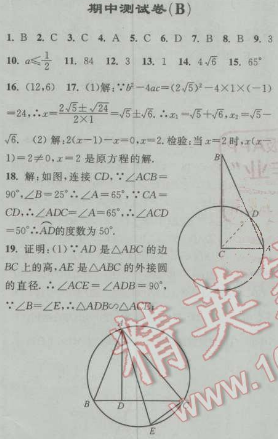 期中测试卷(B)
1. B 2. C 3. C 4. A 5. C 6. D 7. B 8. B 9. 3
10. a≤1/2 11. 84 12. 3 13. 1 14. 4√6 15. 65°
16. (12,6) 17. (1)解:∵b²-4ac=(2√5)²-4×1×(-1)
=24,∴x=(2√5±√24)/(2×1)=√5±√6. ∴x₁=√5+√6,x₂=√5-
√6. (2)解:2(x-1)-x=0,x=2. 检验:当x=2时,x(x-
1)=2≠0,x=2是原方程的解.
18. 解:如图,连接CD,∵∠ACB=
90°,∠B=25°∴∠A=65°. ∵CA=
CD,∴∠ADC=∠A=65°.∴∠ACD
=50°∴AD的度数为50°.
19. 证明:(1)∵AD是△ABC的边
BC上的高,AE是△ABC的外接圆
的直径. ∴∠ACE=∠ADB=90°,
∵∠B=∠E,∴△ADB∽△ACE;
B
D
C
A
B
D
E
精英